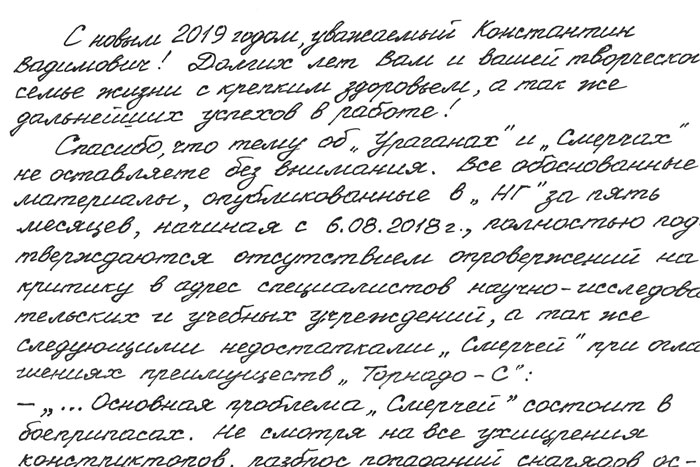 С новым 2019 годом, уважаемый Константин
Вадимович! Долгих лет Вам и вашей творческо
семье жизни с крепким здоровьем, а так же
дальнейших успехов в работе!
Спасибо, что тему об „Ураганах" и „Смерчах"
не оставляете без внимания. Все обоснованные
материалы, опубликованные в „НГ" за пять
месяцев, начиная с 6.08.2018 г., полностью под-
тверждаются отсутствием опровержений на
критику в адрес специалистов научно-исследова
тельских и учебных учреждений, а так же
следующими недостатками „Смерчей" при огла
шениях преимуществ „Торнадо-С":
– „... Основная проблема „Смерчей" состоит в
боеприпасах. Не смотря на все ухищрения
конструкторов, разброс попаданий снарядов ос-